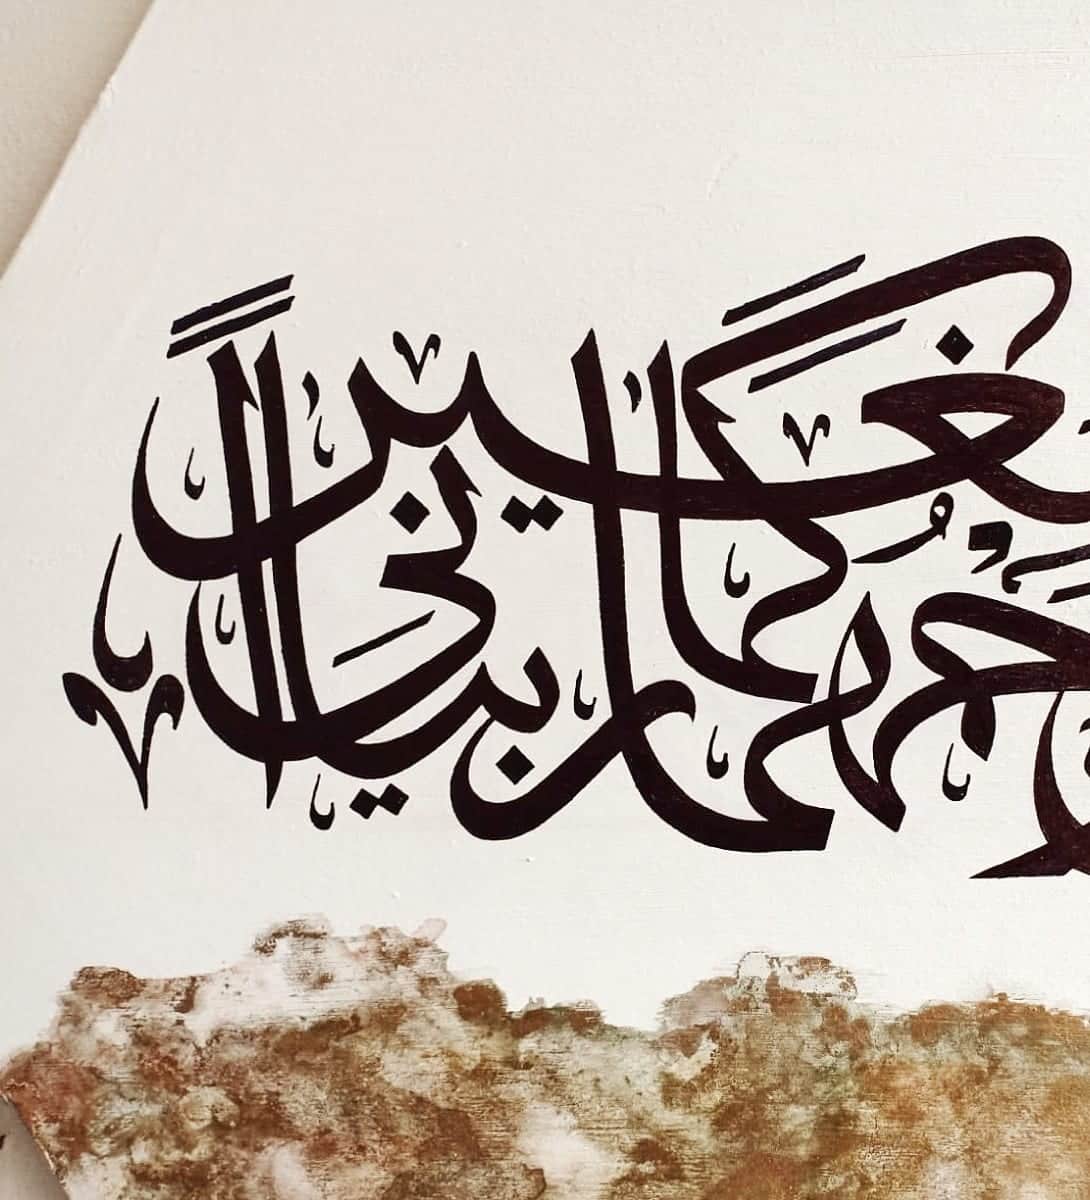 حمهما كما ربياني غيرًا